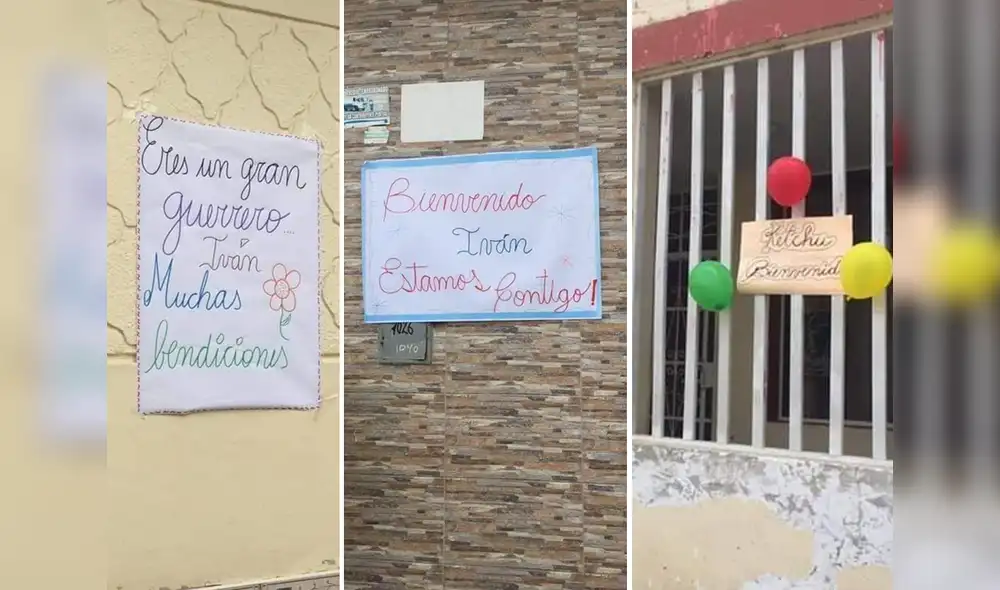 Eres un gran
guerrero...
Iván
Muchas
bendiciones
Bienvenido
Iván
Estamos Contigo!
1026
1040
Ketchu
Bienvenid